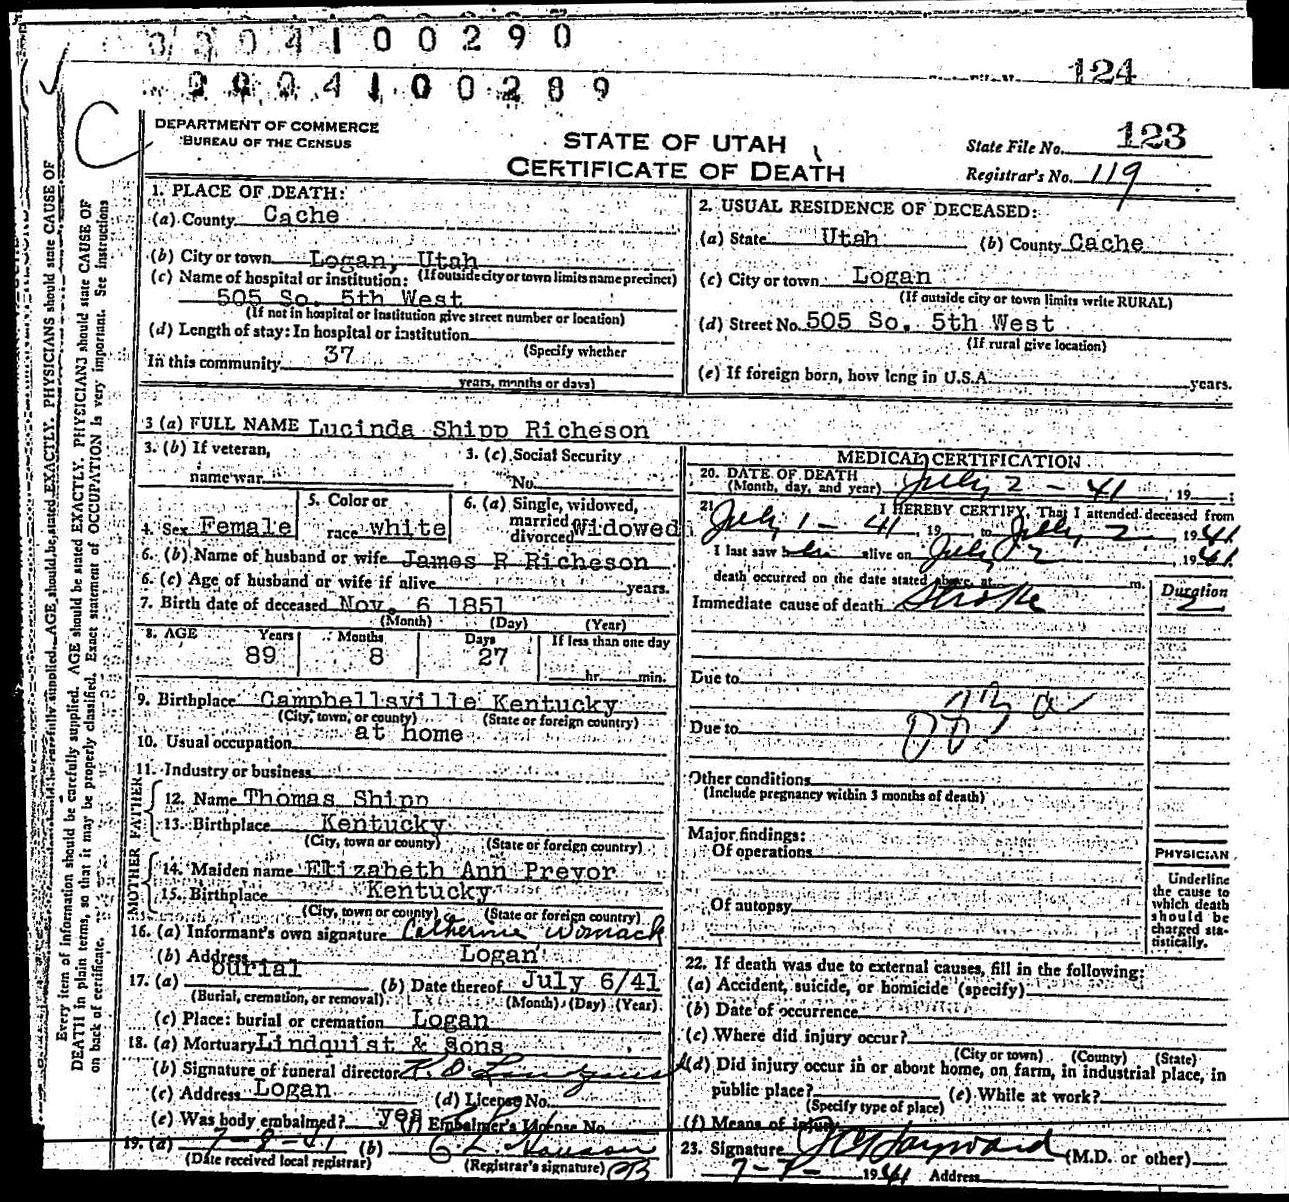 3904100290
124
9904100289
DEPARTMENT OF COMMERCE
BUREAU OF THE CENSUS
STATE OF UTAH
CERTIFICATE OF DEATH
State File No. 123
Registrar's No. 119
1. PLACE OF DEATH:
(a) County Cache
(b) City or town Logan, Utah
(If outside city or town limits name precinct)
(c) Name of hospital or institution:
505 So. 5th West
(If not in hospital or institution give street number or location)
(d) Length of stay: In hospital or institution
(Specify whether
In this community 37
years, months or days)
2. USUAL RESIDENCE OF DECEASED:
(a) State Utah (b) County Cache
(c) City or town Logan
(If outside city or town limits write RURAL)
(d) Street No. 505 So. 5th West
(If rural give location)
(e) If foreign born, how long in U.S.A. years.
3 (a) FULL NAME Lucinda Shipp Richeson
3. (b) If veteran, 3. (c) Social Security
name war No.
4. Sex Female 5. Color or race white 6. (a) Single, widowed, married, divorced Widowed
6. (b) Name of husband or wife James R Richeson
6. (c) Age of husband or wife if alive years.
7. Birth date of deceased Nov. 6 1851
(Month) (Day) (Year)
8. AGE Years Months Days If less than one day
89 8 27 hr. min.
9. Birthplace Campbellsville Kentucky
(City, town, or county) (State or foreign country)
10. Usual occupation at home
11. Industry or business
FATHER
12. Name Thomas Shipp
13. Birthplace Kentucky
(City, town or county) (State or foreign country)
MOTHER
14. Maiden name Elizabeth Ann Prevor
15. Birthplace Kentucky
(City, town or county) (State or foreign country)
16. (a) Informant's own signature Catherine Womack
(b) Address Logan
17. (a) burial (b) Date thereof July 6/41
(Burial, cremation, or removal) (Month) (Day) (Year)
(c) Place: burial or cremation Logan
18. (a) Mortuary Lindquist & Sons
(b) Signature of funeral director
(c) Address Logan (d) License No.
(e) Was body embalmed? yes (f) Embalmer's License No.
19. (a) 7-8-41 (b)
(Date received local registrar) (Registrar's signature)
MEDICAL CERTIFICATION
20. DATE OF DEATH
(Month, day, and year) July 2 - 41, 19
21. I HEREBY CERTIFY, That I attended deceased from
July 1 - 41, 19 to July 2 1941
I last saw alive on July 2, 1941
death occurred on the date stated above, at m.
Immediate cause of death Stroke
Duration
2
Due to
Due to
Other conditions
(Include pregnancy within 3 months of death)
Major findings:
Of operations
Of autopsy
PHYSICIAN
Underline
the cause to
which death
should be
charged sta-
tistically.
22. If death was due to external causes, fill in the following:
(a) Accident, suicide, or homicide (specify)
(b) Date of occurrence
(c) Where did injury occur?
(City or town) (County) (State)
(d) Did injury occur in or about home, on farm, in industrial place, in
public place? (e) While at work?
(Specify type of place)
(f) Means of injury
23. Signature Hayward (M.D. or other)
1941 Address
Every item of information should be carefully supplied. AGE should be stated EXACTLY. PHYSICIANS should state CAUSE OF
DEATH in plain terms, so that it may be properly classified. Exact statement of OCCUPATION is very important. See instructions
on back of certificate.